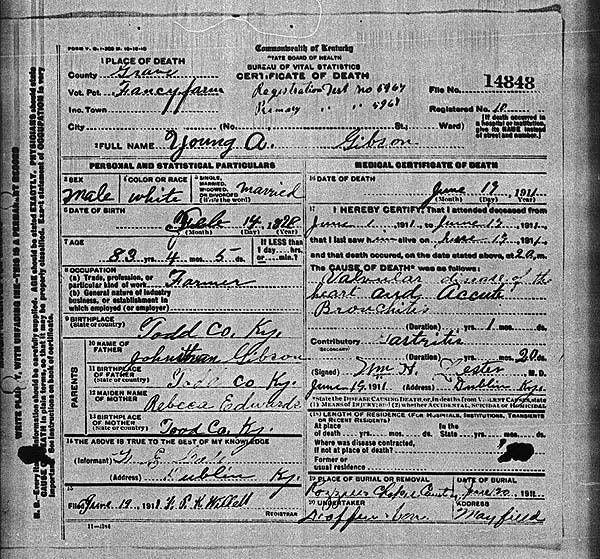 FORM V. S. 1-
Commonwealth of Kentucky
STATE BOARD OF HEALTH
BUREAU OF VITAL STATISTICS
CERTIFICATE OF DEATH
1 PLACE OF DEATH
County Graves
Vot. Pct. Fancyfarm
Inc. Town
City (No., St.; Ward)
Registration Dist No 5967
Primary " " 5968
File No. 14848
Registered No. 10
[If death occurred in a hospital or institution, give its NAME instead of street and number.]
2 FULL NAME Young A. Gibson
PERSONAL AND STATISTICAL PARTICULARS
3 SEX Male
4 COLOR OR RACE White
5 SINGLE, MARRIED, WIDOWED, OR DIVORCED (Write the word) Married
6 DATE OF BIRTH
Feb 14 1828
(Month) (Day) (Year)
7 AGE
83 yrs. 4 mos. 5 ds.
If LESS than 1 day,... hrs. or... min.?
8 OCCUPATION
(a) Trade, profession, or particular kind of work Farmer
(b) General nature of industry business, or establishment in which employed (or employer)
9 BIRTHPLACE (State or country) Todd Co. Ky.
PARENTS
10 NAME OF FATHER Gibson
11 BIRTHPLACE OF FATHER (State or country) Todd Co Ky.
12 MAIDEN NAME OF MOTHER Rebecca Edwards
13 BIRTHPLACE OF MOTHER (State or country) Todd Co. Ky.
14 THE ABOVE IS TRUE TO THE BEST OF MY KNOWLEDGE
(Informant)
(Address) Dublin Ky.
15
Filed June 19 1911
REGISTRAR
11-
MEDICAL CERTIFICATE OF DEATH
16 DATE OF DEATH
June 19 1911
(Month) (Day) (Year)
17 I HEREBY CERTIFY, That I attended deceased from
June 1 1911 to June 19 1911
that I last saw him alive on June 19 1911
and that death occurred, on the date stated above, at 2 a.m.
The CAUSE OF DEATH* was as follows:
Valvular disease of the
heart and Accute
Bronchitis
(Duration) yrs. 1 mos. ds.
Contributory Gastritis
(SECONDARY)
(Duration) yrs. mos. 20 ds.
Signed Wm H. Lester
June 19 1911 (Address) Dublin Ky.
*State the DISEASE CAUSING DEATH, or, in deaths from VIOLENT CAUSES state (1) MEANS OF INJURY; and (2) whether ACCIDENTAL, SUICIDAL or HOMICIDAL
18 LENGTH OF RESIDENCE (FOR HOSPITALS, INSTITUTIONS, TRANSIENTS OR RECENT RESIDENTS)
At place of death yrs. mos. ds. In the State yrs. mos. ds.
Where was disease contracted, if not at place of death?
Former or usual residence
19 PLACE OF BURIAL OR REMOVAL
DATE OF BURIAL
June 20 1911
20 UNDERTAKER
ADDRESS
Mayfield